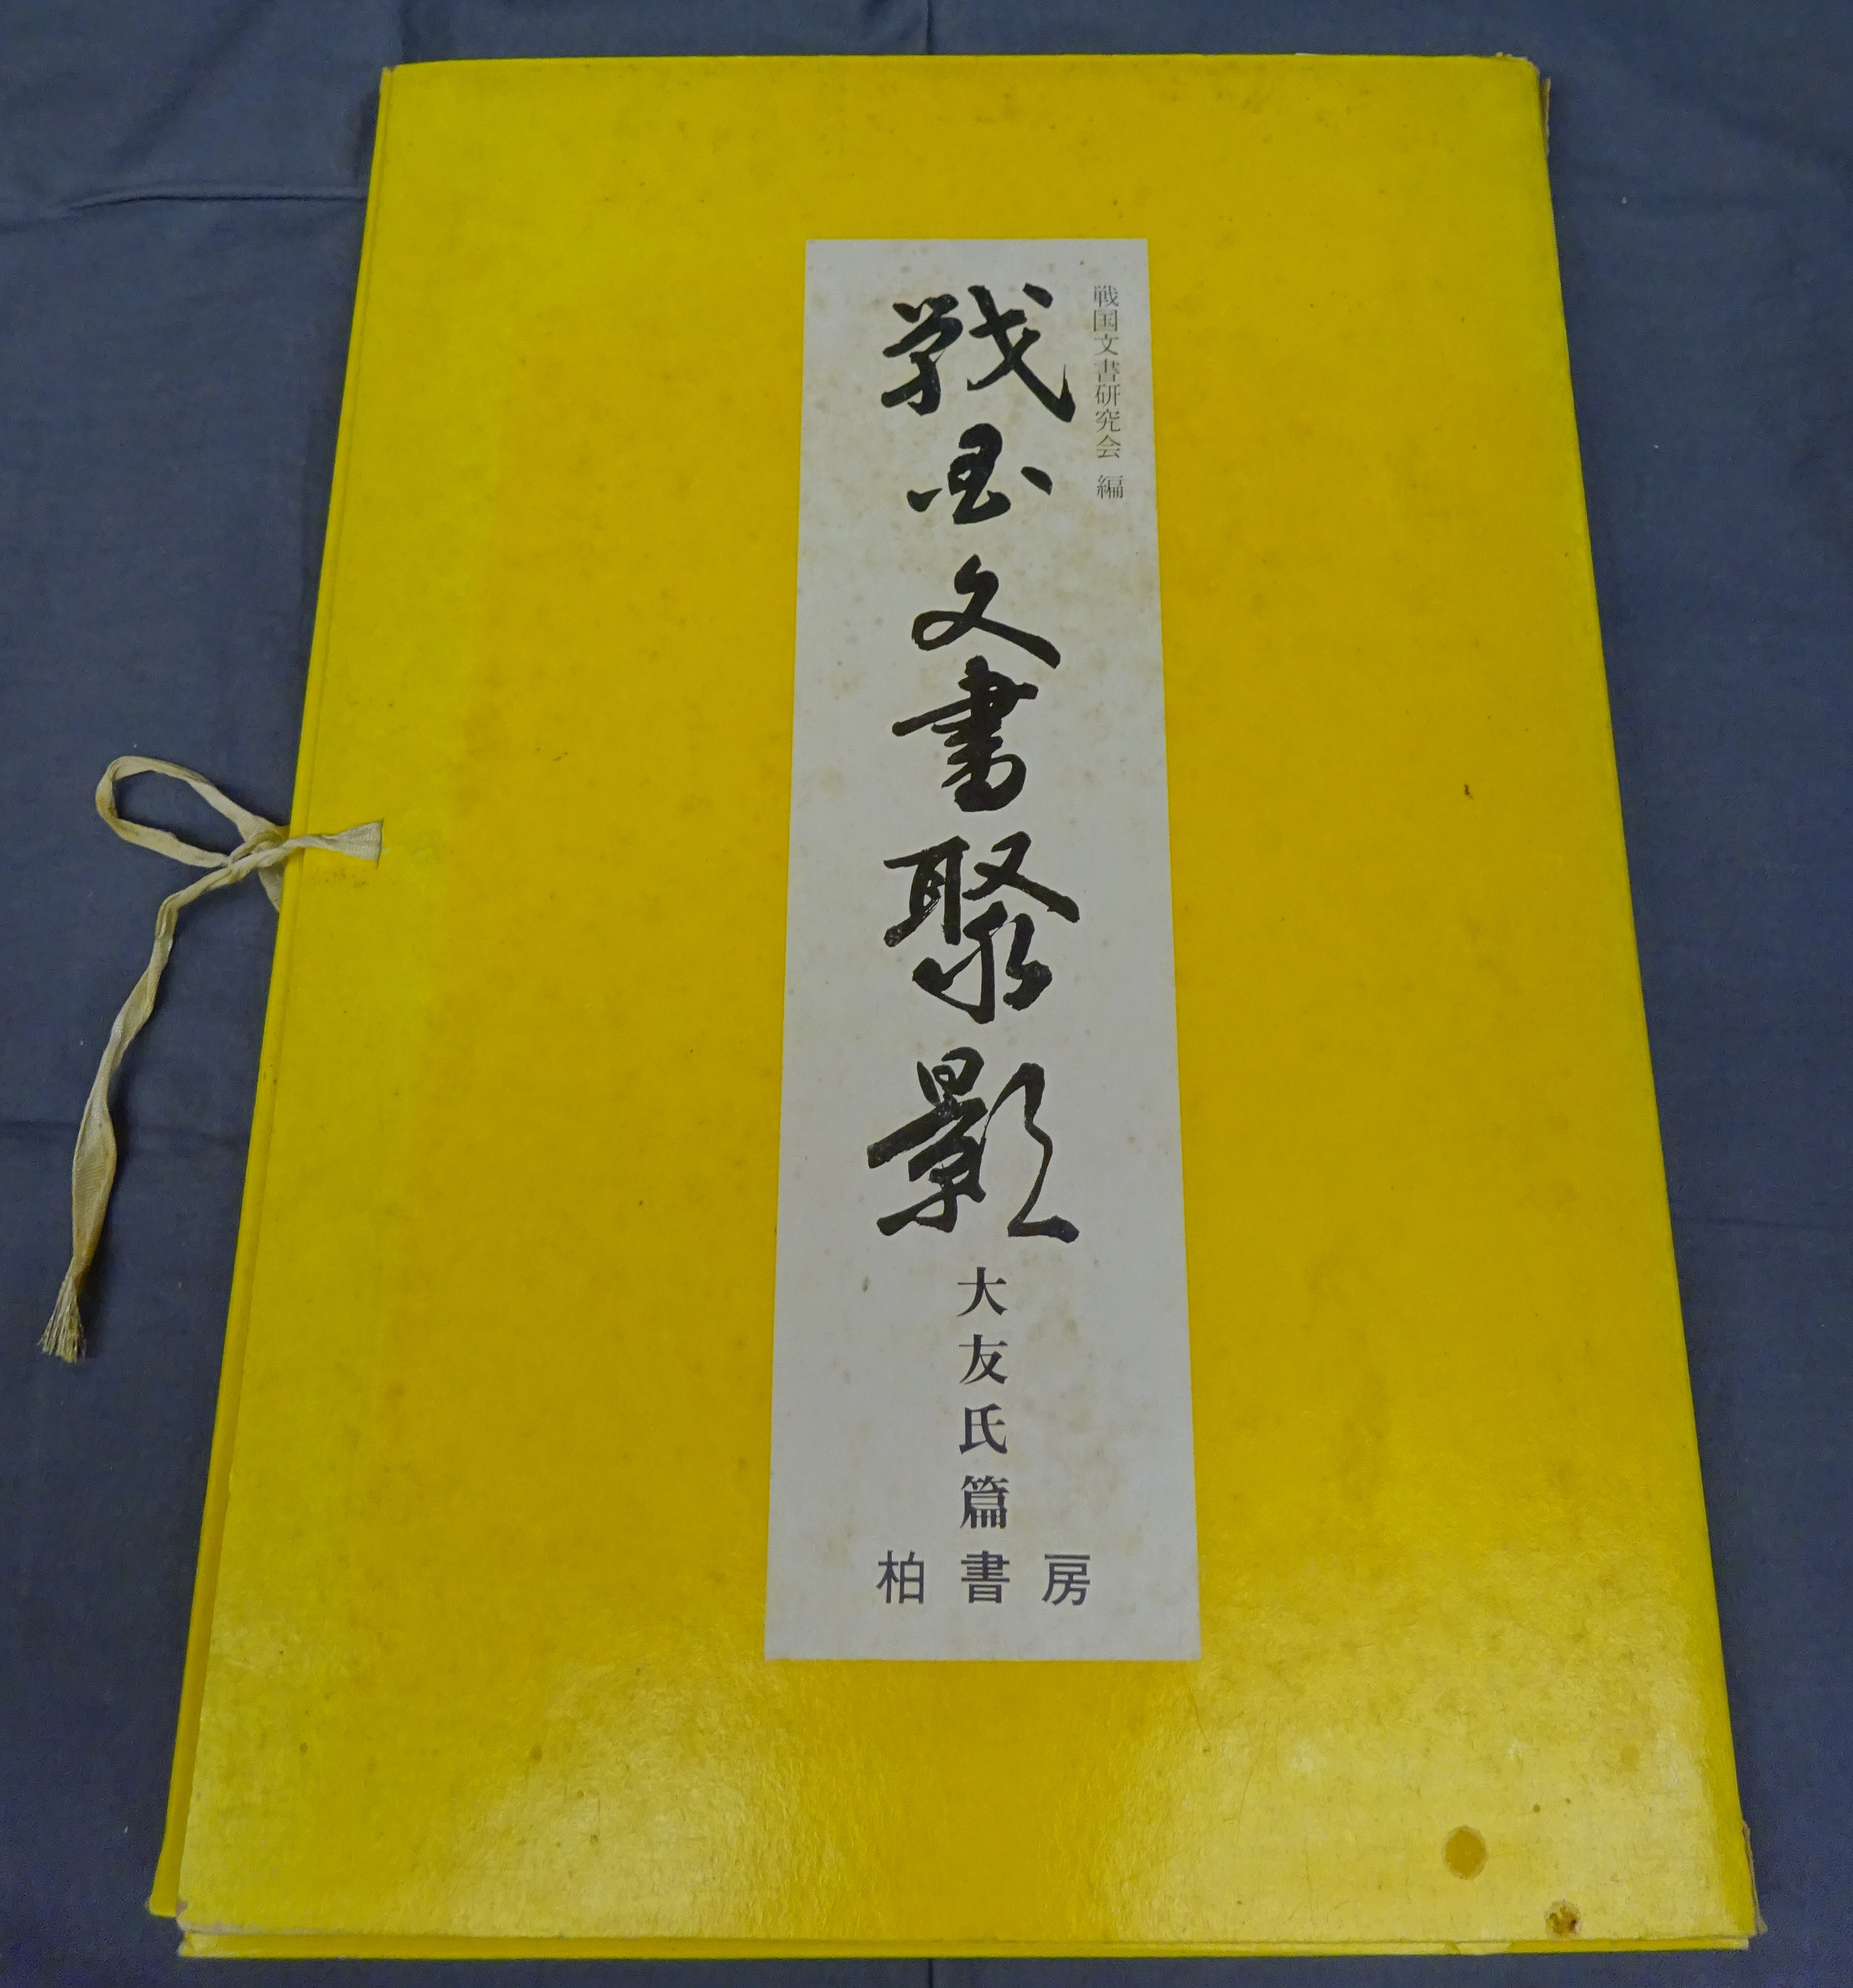 戦国文書研究会 編
戦国文書聚影
大友氏篇
柏書房